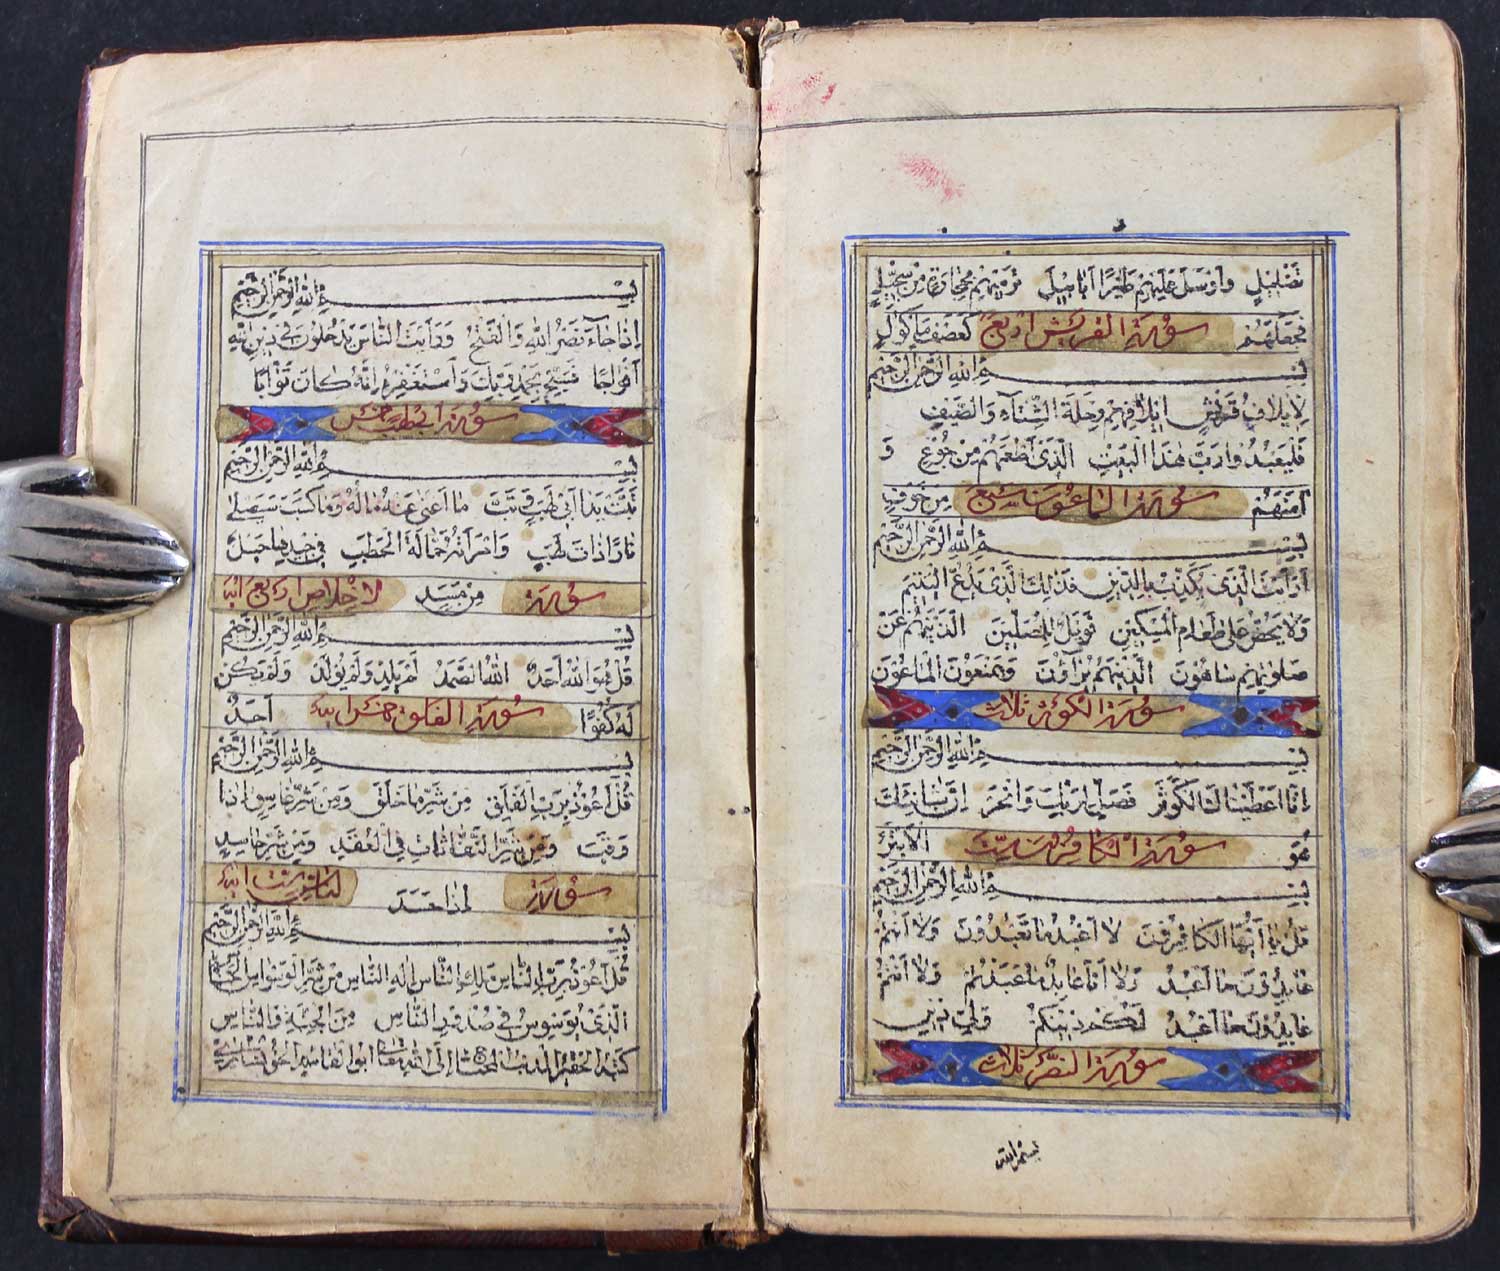 تَضْلِيلٍ وَأَرْسَلَ عَلَيْهِمْ طَيْرًا أَبَابِيلَ تَرْمِيهِمْ بِحِجَارَةٍ مِنْ سِجِّيلٍ
فَجَعَلَهُمْ سورة القريش اربع كَعَصْفٍ مَأْكُولٍ
بِسْمِ اللهِ الرَّحْمٰنِ الرَّحِيمِ
لِإِيلَافِ قُرَيْشٍ إِيلَافِهِمْ رِحْلَةَ الشِّتَاءِ وَالصَّيْفِ
فَلْيَعْبُدُوا رَبَّ هٰذَا الْبَيْتِ الَّذِي أَطْعَمَهُمْ مِنْ جُوعٍ وَ
آمَنَهُمْ سورة الماعون سبع مِنْ خَوْفٍ
بِسْمِ اللهِ الرَّحْمٰنِ الرَّحِيمِ
أَرَأَيْتَ الَّذِي يُكَذِّبُ بِالدِّينِ فَذٰلِكَ الَّذِي يَدُعُّ الْيَتِيمَ
وَلَا يَحُضُّ عَلَى طَعَامِ الْمِسْكِينِ فَوَيْلٌ لِلْمُصَلِّينَ الَّذِينَ هُمْ عَنْ
صَلَوتِهِمْ سَاهُونَ الَّذِينَ هُمْ يُرَاؤُنَ وَيَمْنَعُونَ الْمَاعُونَ
سورة الكوثر ثلاث
بِسْمِ اللهِ الرَّحْمٰنِ الرَّحِيمِ
إِنَّا أَعْطَيْنَاكَ الْكَوْثَرَ فَصَلِّ لِرَبِّكَ وَانْحَرْ إِنَّ شَانِئَكَ
هُوَ سورة الكافرون ست الْأَبْتَرُ
بِسْمِ اللهِ الرَّحْمٰنِ الرَّحِيمِ
قُلْ يَا أَيُّهَا الْكَافِرُونَ لَا أَعْبُدُ مَا تَعْبُدُونَ وَلَا أَنْتُمْ
عَابِدُونَ مَا أَعْبُدُ وَلَا أَنَا عَابِدٌ مَا عَبَدْتُمْ وَلَا أَنْتُمْ
عَابِدُونَ مَا أَعْبُدُ لَكُمْ دِينُكُمْ وَلِيَ دِينِ
سورة النصر ثلاث
بِسْمِ اللهِ الرَّحْمٰنِ الرَّحِيمِ
إِذَا جَاءَ نَصْرُ اللهِ وَالْفَتْحُ وَرَأَيْتَ النَّاسَ يَدْخُلُونَ فِي دِينِ اللهِ
أَفْوَاجًا فَسَبِّحْ بِحَمْدِ رَبِّكَ وَاسْتَغْفِرْهُ إِنَّهُ كَانَ تَوَّابًا
سورة ابي لهب خمس
بِسْمِ اللهِ الرَّحْمٰنِ الرَّحِيمِ
تَبَّتْ يَدَا أَبِي لَهَبٍ وَتَبَّ مَا أَغْنَى عَنْهُ مَالُهُ وَمَا كَسَبَ سَيَصْلَى
نَارًا ذَاتَ لَهَبٍ وَامْرَأَتُهُ حَمَّالَةَ الْحَطَبِ فِي جِيدِهَا حَبْلٌ
سورة مِنْ مَسَدٍ لاخلاص اربع اية
بِسْمِ اللهِ الرَّحْمٰنِ الرَّحِيمِ
قُلْ هُوَ اللهُ أَحَدٌ اللهُ الصَّمَدُ لَمْ يَلِدْ وَلَمْ يُولَدْ وَلَمْ يَكُنْ
لَهُ كُفُوًا سورة الفلق خمس اية أَحَدٌ
بِسْمِ اللهِ الرَّحْمٰنِ الرَّحِيمِ
قُلْ أَعُوذُ بِرَبِّ الْفَلَقِ مِنْ شَرِّ مَا خَلَقَ وَمِنْ شَرِّ غَاسِقٍ إِذَا
وَقَبَ وَمِنْ شَرِّ النَّفَّاثَاتِ فِي الْعُقَدِ وَمِنْ شَرِّ حَاسِدٍ
سورة إِذَا حَسَدَ لناس ست اية
بِسْمِ اللهِ الرَّحْمٰنِ الرَّحِيمِ
قُلْ أَعُوذُ بِرَبِّ النَّاسِ مَلِكِ النَّاسِ إِلٰهِ النَّاسِ مِنْ شَرِّ الْوَسْوَاسِ الْخَنَّاسِ
الَّذِي يُوَسْوِسُ فِي صُدُورِ النَّاسِ مِنَ الْجِنَّةِ وَالنَّاسِ
كتبه الحقير المذنب المحتاج الى الله تعالى ابو القاسم